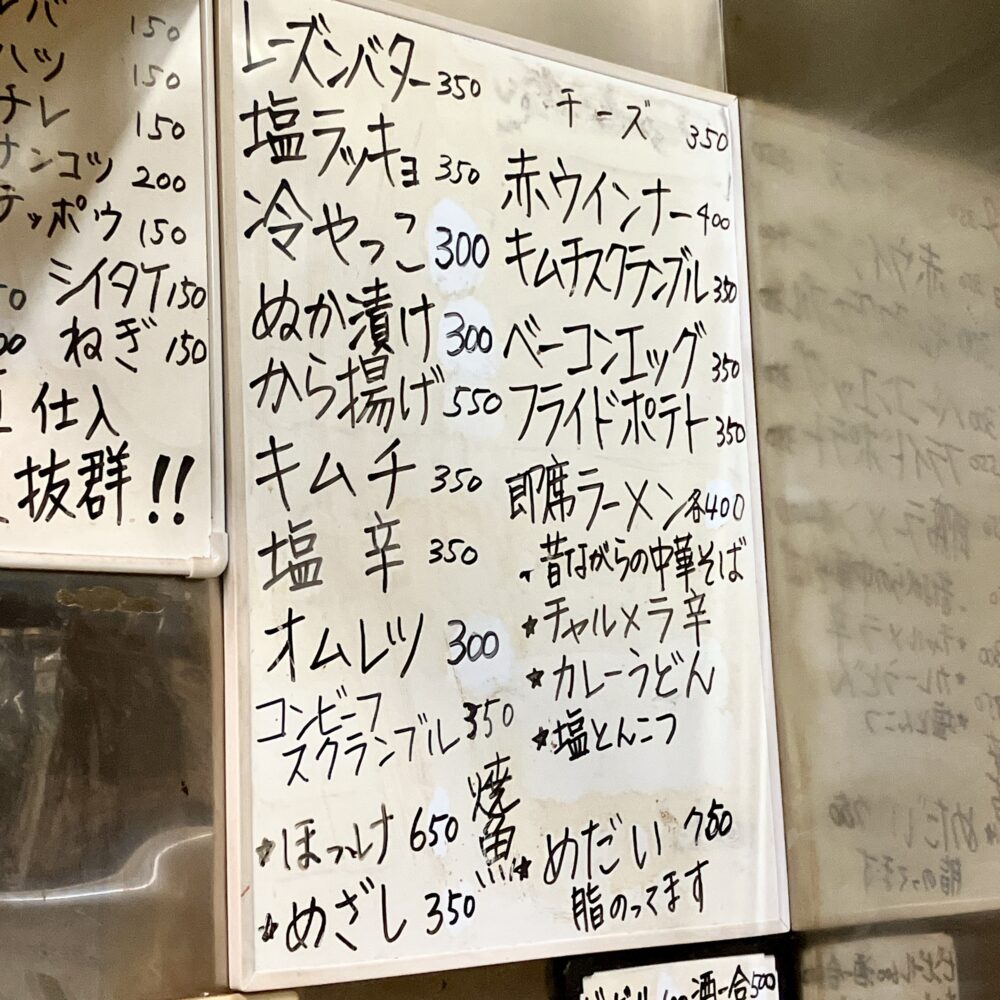 150
ハツ 150
ナレ 150
ナンコツ 200
テッポウ 150
シイタケ 150
ねぎ 150
仕入
抜群!!
レーズンバター 350
塩ラッキョ 350
冷やっこ 300
ぬか漬け 300
から揚げ 550
キムチ 350
塩辛 350
オムレツ 300
コンビーフ
スクランブル 350
焼魚
☆ほっけ 650
☆めざし 350
チーズ 350
赤ウインナー 400
キムチスクランブル 350
ベーコンエッグ 350
フライドポテト 350
即席ラーメン各400
・昔ながらの中華そば
☆チャルメラ辛
☆カレーうどん
☆塩とんこつ
☆めだい 750
脂のってます
酒一合500